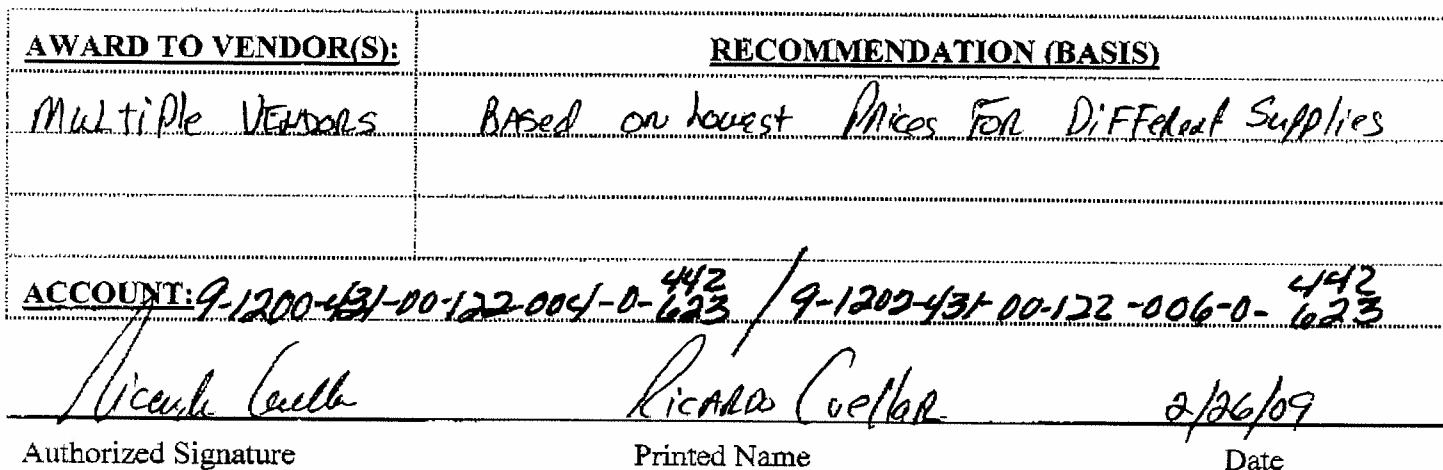 AWARD TO VENDOR(S): RECOMMENDATION (BASIS)
Multiple Vendors Based on Lowest Prices For Different Supplies
442 442
ACCOUNT: 9-1200-431-00-122-004-0-623 / 9-1202-431-00-122-006-0-623
Ricardo Cuellar Ricardo Cuellar 2/26/09
Authorized Signature Printed Name Date